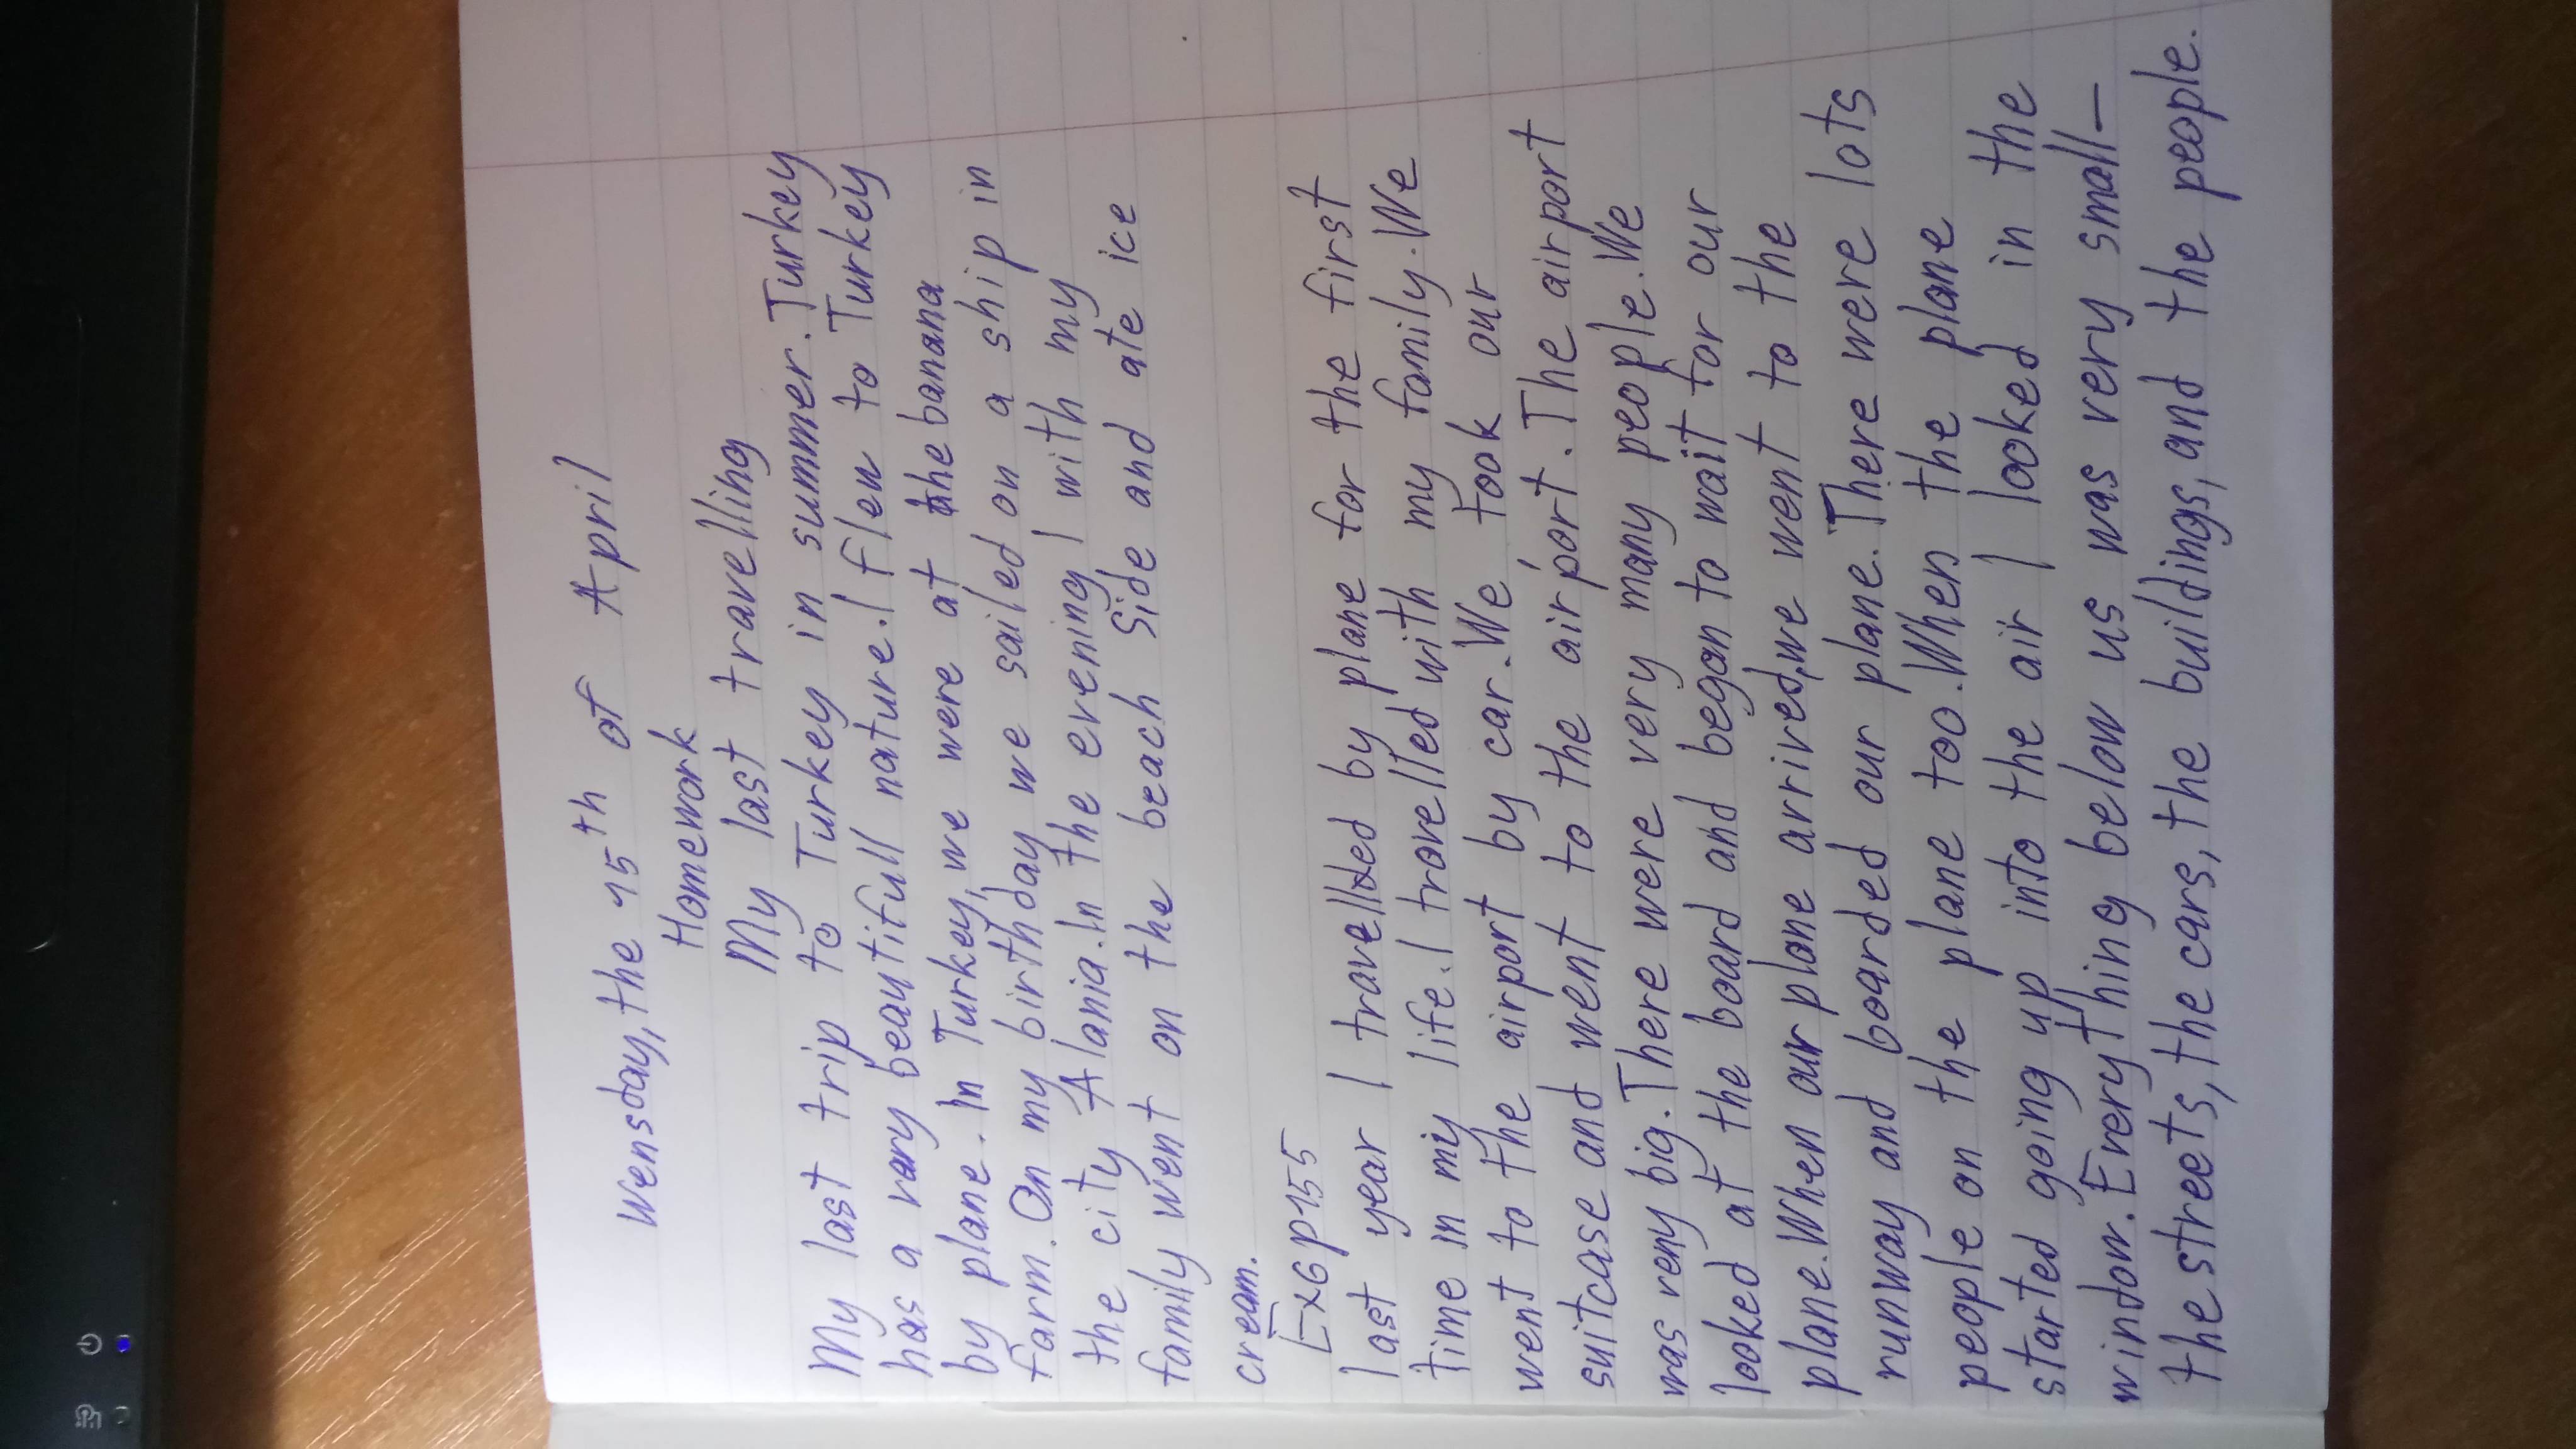 Wensday, the 15th of April
Homework
My last travelling
My last trip to Turkey in summer. Turkey
has a very beautifull nature. I flew to Turkey
by plane. In Turkey, we were at the banana
farm. On my birthday we sailed on a ship in
the city Alania. In the evening I with my
family went on the beach Side and ate ice
cream.
Ex6 p155
last year I travelled by plane for the first
time in my life. I travelled with my family. We
went to the airport by car. We took our
suitcase and went to the airport. The airport
was very big. There were very many people. We
looked at the board and began to wait for our
plane. When our plane arrived, we went to the
runway and boarded our plane. There were lots
people on the plane too. When the plane
started going up into the air I looked in the
window. Everything below us was very small–
the streets, the cars, the buildings, and the people.